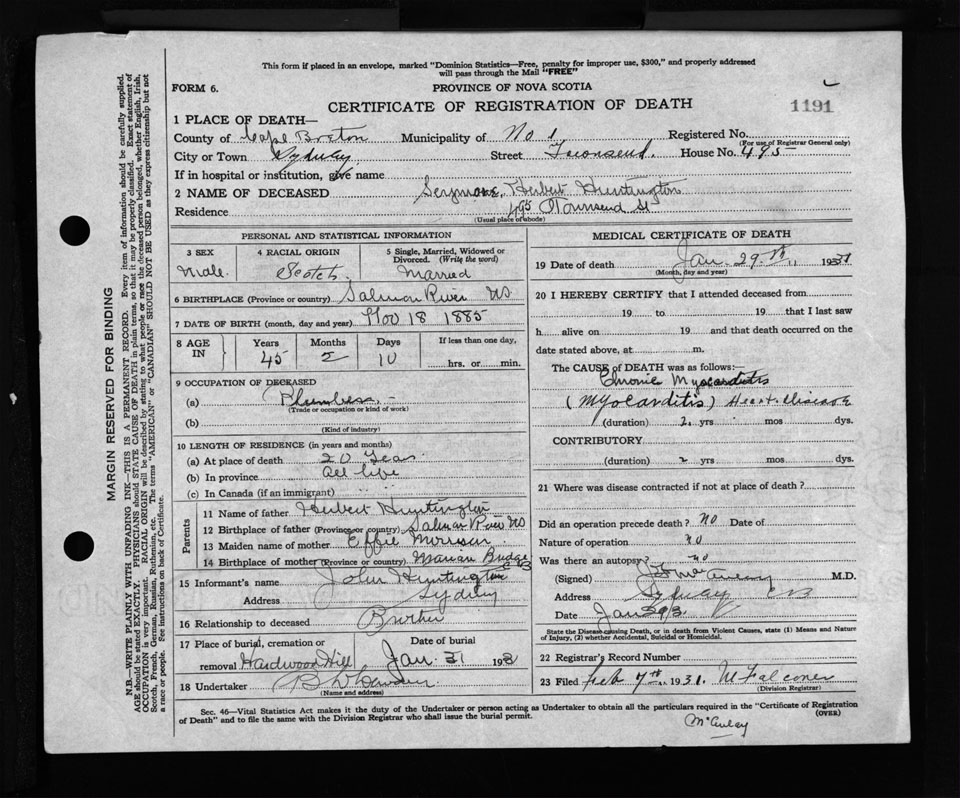 This form if placed in an envelope, marked "Dominion Statistics—Free, penalty for improper use, $300," and properly addressed
will pass through the Mail "FREE"
FORM 6.
PROVINCE OF NOVA SCOTIA
CERTIFICATE OF REGISTRATION OF DEATH
1191
1 PLACE OF DEATH—
County of Cape Breton Municipality of No 1 Registered No.
(For use of Registrar General only)
City or Town Sydney Street Townsend. House No. 495
If in hospital or institution, give name
2 NAME OF DECEASED Seymore, Herbert Huntington
Residence 495 Townsend St
(Usual place of abode)
PERSONAL AND STATISTICAL INFORMATION
3 SEX
Male.
4 RACIAL ORIGIN
Scotch
5 Single, Married, Widowed or
Divorced. (Write the word)
Married
6 BIRTHPLACE (Province or country) Salmon River NS
7 DATE OF BIRTH (month, day and year) Nov 18 1885
8 AGE
IN
Years
45
Months
2
Days
10
If less than one day,
hrs. or min.
9 OCCUPATION OF DECEASED
(a)
(Trade or occupation or kind of work)
(b)
(Kind of industry)
10 LENGTH OF RESIDENCE (in years and months)
(a) At place of death 20 Years
(b) In province All life
(c) In Canada (if an immigrant)
Parents
11 Name of father Herbert Huntington
12 Birthplace of father (Province or country) Salmon River NS
13 Maiden name of mother Effie Morrison
14 Birthplace of mother (Province or country) Marian Bridge CB
15 Informant's name John Huntington
Address Sydney
16 Relationship to deceased Brother
17 Place of burial, cremation or
removal Hardwood Hill
Date of burial
Jan. 31 193
18 Undertaker
(Name and address)
MEDICAL CERTIFICATE OF DEATH
19 Date of death Jan. 29th, 1931
(Month, day and year)
20 I HEREBY CERTIFY that I attended deceased from
19 to 19 that I last saw
h alive on 19 and that death occurred on the
date stated above, at m.
The CAUSE of DEATH was as follows:—
Chronic Myocarditis
(Myocarditis) Heart Disease
(duration) 2 yrs mos dys.
CONTRIBUTORY
(duration) 2 yrs mos dys.
21 Where was disease contracted if not at place of death?
Did an operation precede death? No Date of
Nature of operation no
Was there an autopsy? no
(Signed) M.D.
Address Sydney CB
Date Jan 29/31
State the Disease causing Death, or in death from Violent Causes, state (1) Means and Nature
of Injury, (2) whether Accidental, Suicidal or Homicidal.
22 Registrar's Record Number
23 Filed Feb 7th 1931. M Falconer
(Division Registrar)
Sec. 46—Vital Statistics Act makes it the duty of the Undertaker or person acting as Undertaker to obtain all the particulars required in the "Certificate of Registration
of Death" and to file the same with the Division Registrar who shall issue the burial permit.
(OVER)
McAulay
MARGIN RESERVED FOR BINDING
N.B.—WRITE PLAINLY WITH UNFADING INK—THIS IS A PERMANENT RECORD. Every item of information should be carefully supplied.
AGE should be stated EXACTLY. PHYSICIANS should STATE CAUSE OF DEATH in plain terms, so that it may be properly classified. Exact statement of
OCCUPATION is very important. RACIAL ORIGIN will be described by stating to what people or race the deceased person belonged, whether English, Irish,
Scotch, French, German, Russian, Ruthenian, etc. The terms "AMERICAN" or "CANADIAN" SHOULD NOT BE USED as they express citizenship but not
a race or people. See instructions on back of Certificate.